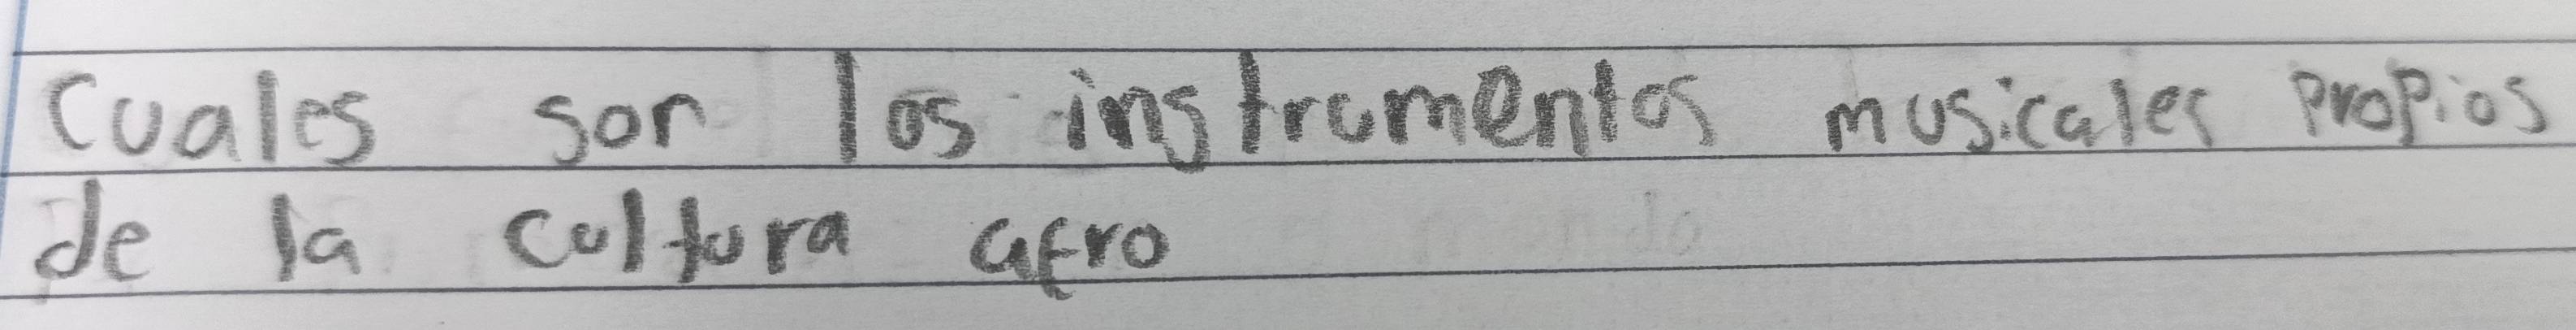 Cuales son los instrumentos musicales propios
de la cultura afro